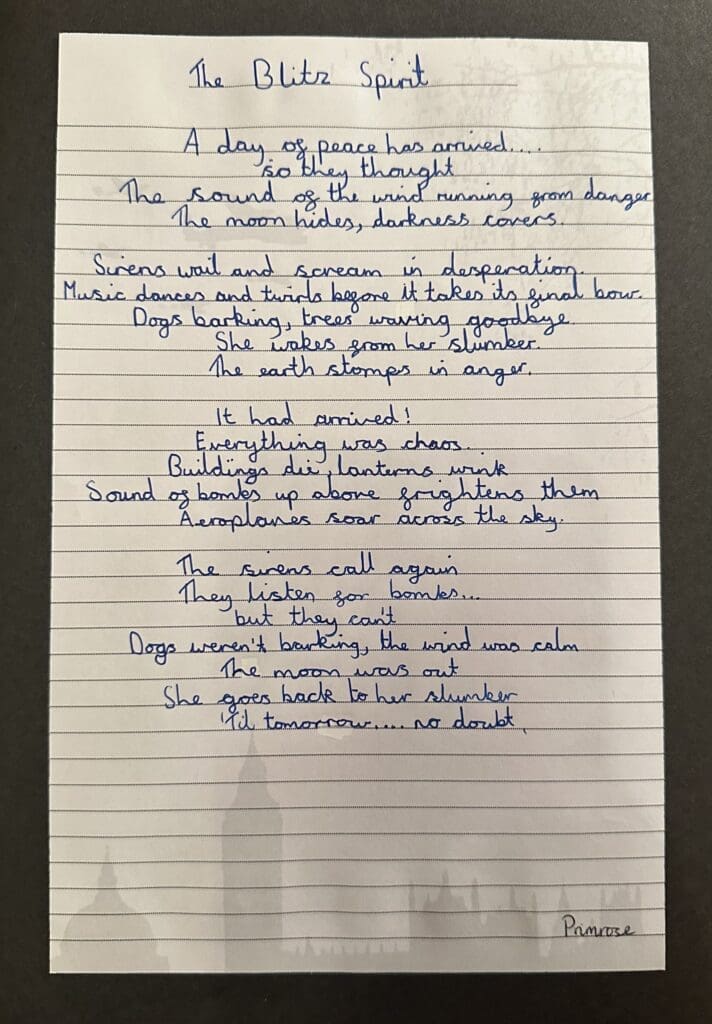 The Blitz Spirit
A day of peace has arrived....
so they thought
The sound of the wind running from danger
The moon hides, darkness covers.
Sirens wail and scream in desperation.
Music dances and twirls before it takes its final bow.
Dogs barking, trees waving goodbye.
She wakes from her slumber.
The earth stomps in anger.
It had arrived!
Everything was chaos.
Buildings die, lanterns wink
Sound of bombs up above frightens them
Aeroplanes soar across the sky.
The sirens call again
They listen for bombs...
but they can't
Dogs weren't barking, the wind was calm
The moon was out
She goes back to her slumber
'Til tomorrow.... no doubt.
Primrose